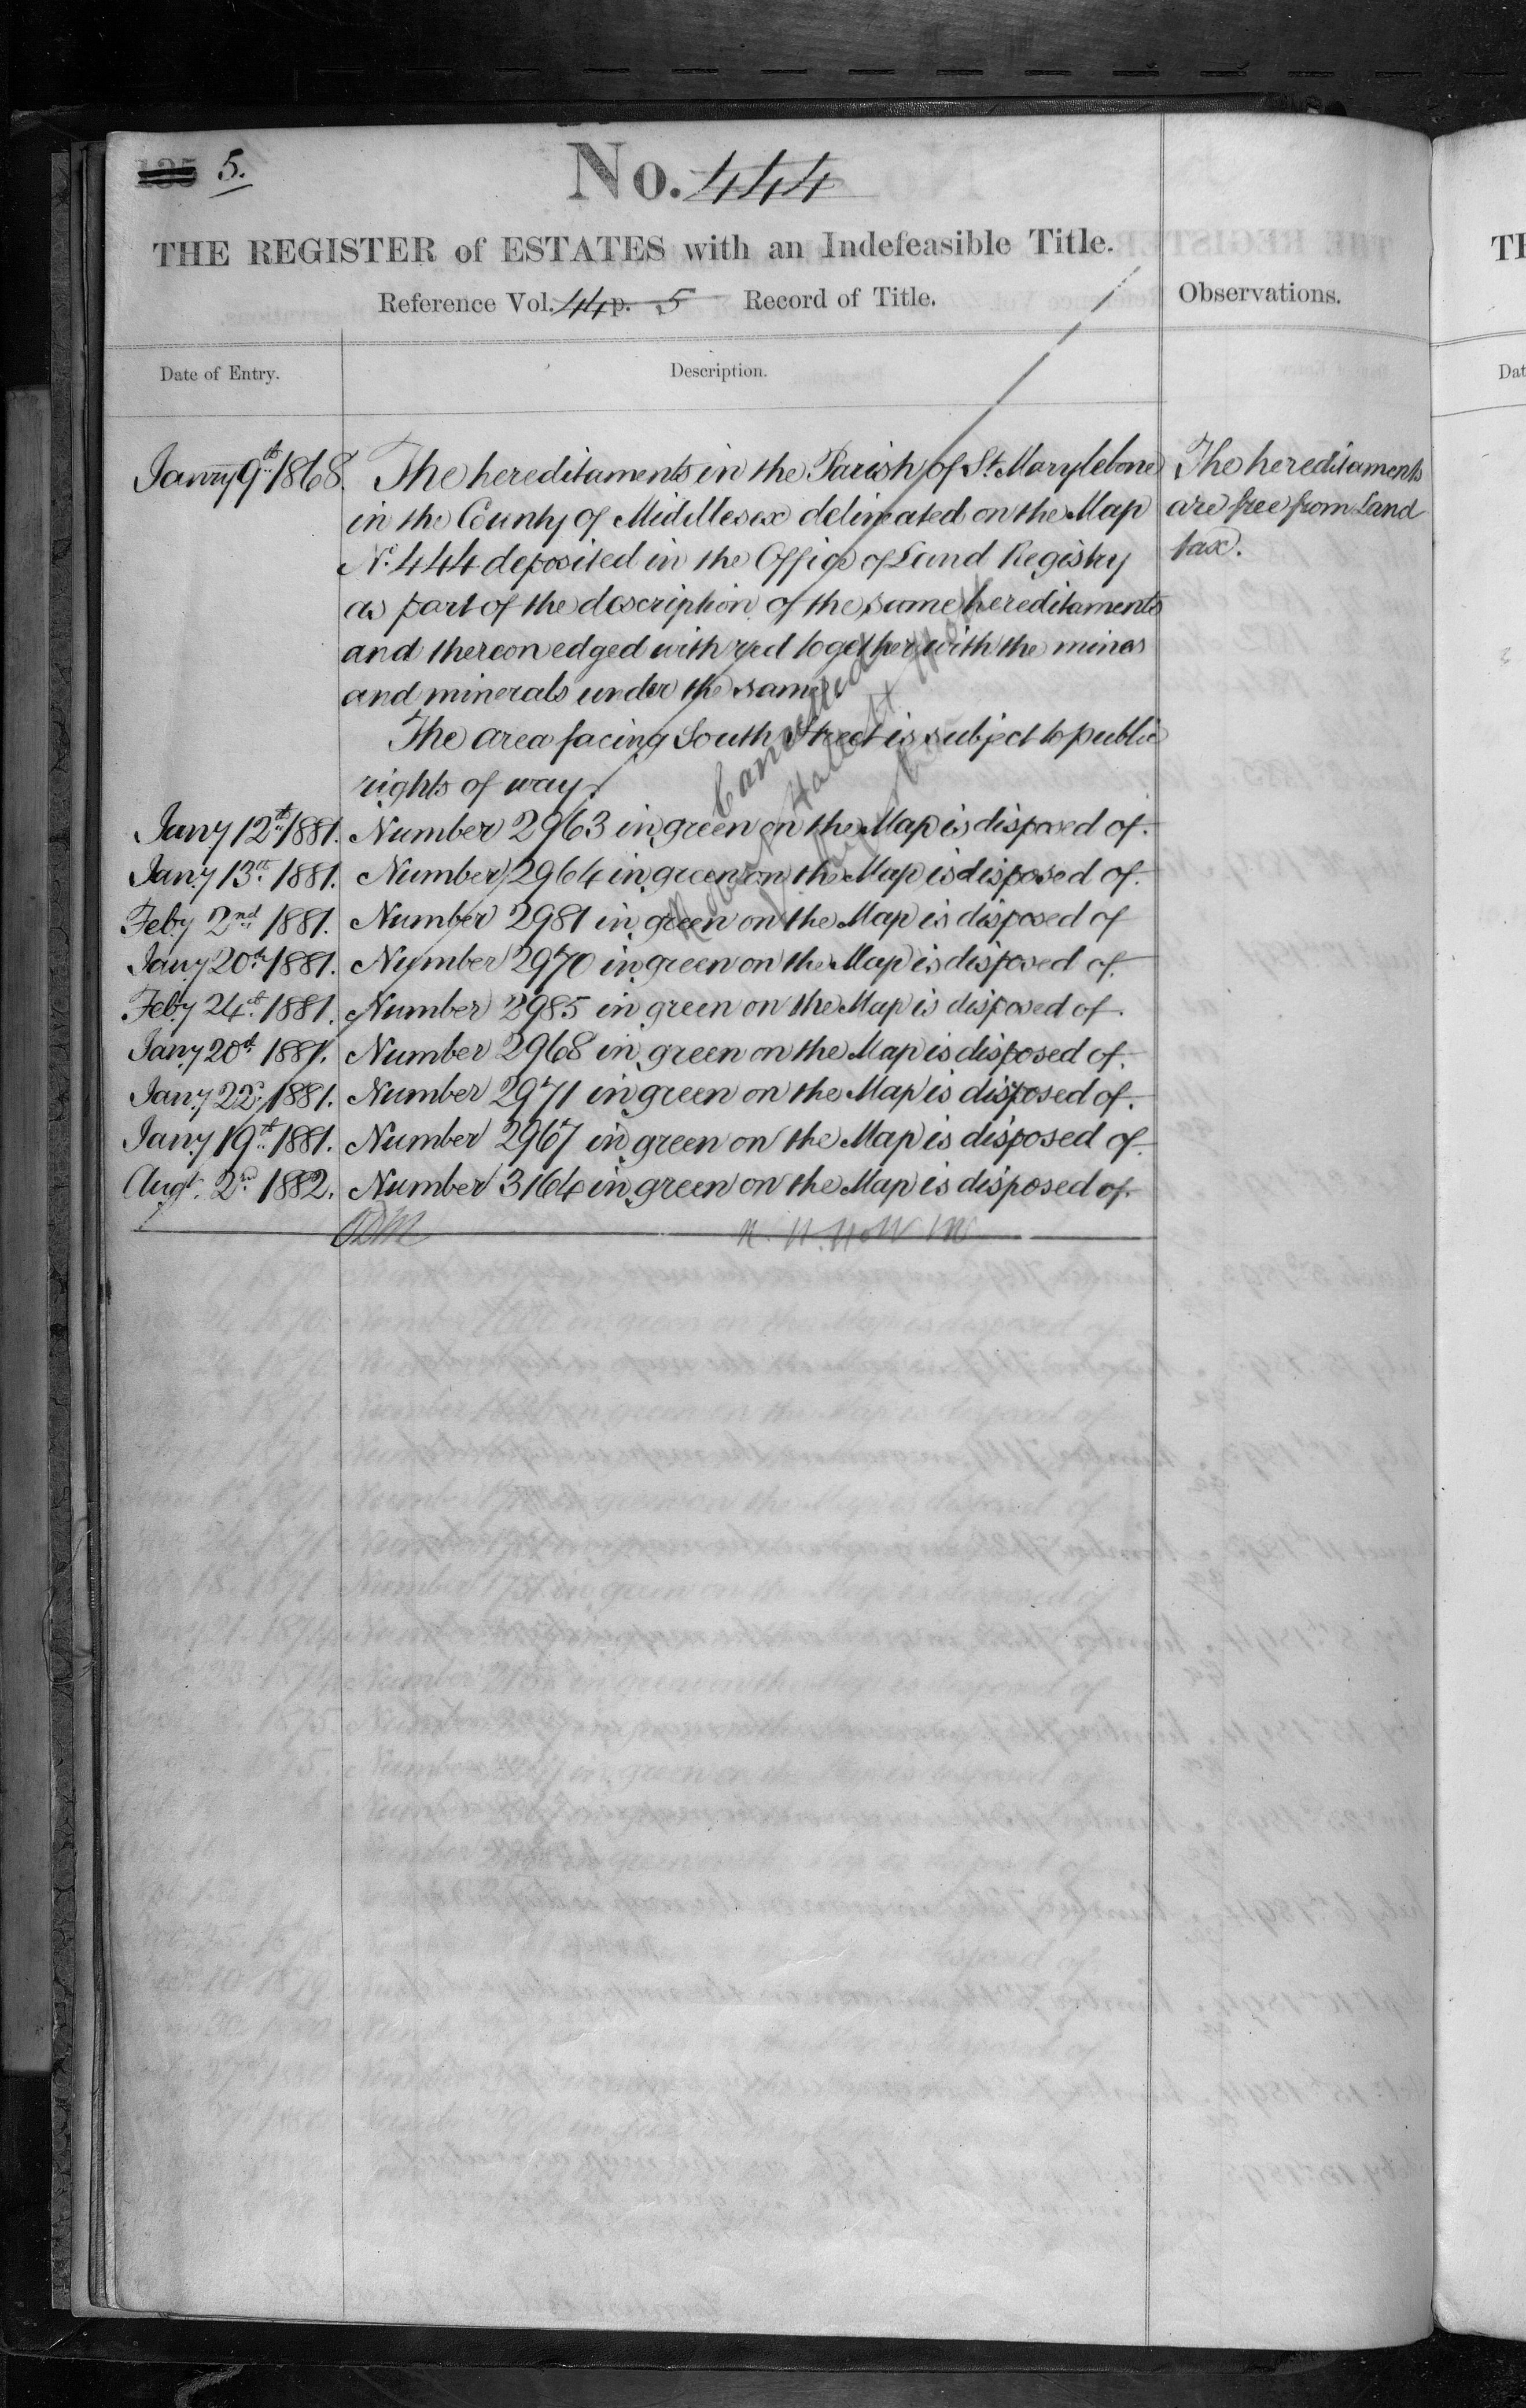 135 5.
No. 444
THE REGISTER of ESTATES with an Indefeasible Title.
Reference Vol. 44 p. 5 Record of Title.
Observations.
Date of Entry.
Description.
Janry 9th 1868. The hereditaments in the Parish of St. Marylebone
in the County of Middlesex delineated on the Map
No. 444 deposited in the Office of Land Registry
as part of the description of the same hereditaments
and thereon edged with red together with the mines
and minerals under the same.
The area facing South Street is subject to public
rights of way.
The hereditaments
are free from Land
tax.
Jany 12th 1881. Number 2963 in green on the Map is disposed of.
Jany 13th 1881. Number 2964 in green on the Map is disposed of.
Feby 2nd 1881. Number 2981 in green on the Map is disposed of
Jany 20th 1881. Number 2970 in green on the Map is disposed of.
Feby 24th 1881. Number 2985 in green on the Map is disposed of.
Jany 20th 1881. Number 2968 in green on the Map is disposed of.
Jany 22d 1881. Number 2971 in green on the Map is disposed of.
Jany 19th 1881. Number 2967 in green on the Map is disposed of.
Augt. 2nd 1882. Number 3164 in green on the Map is disposed of.
Cancelled
Robert Hallett Holt